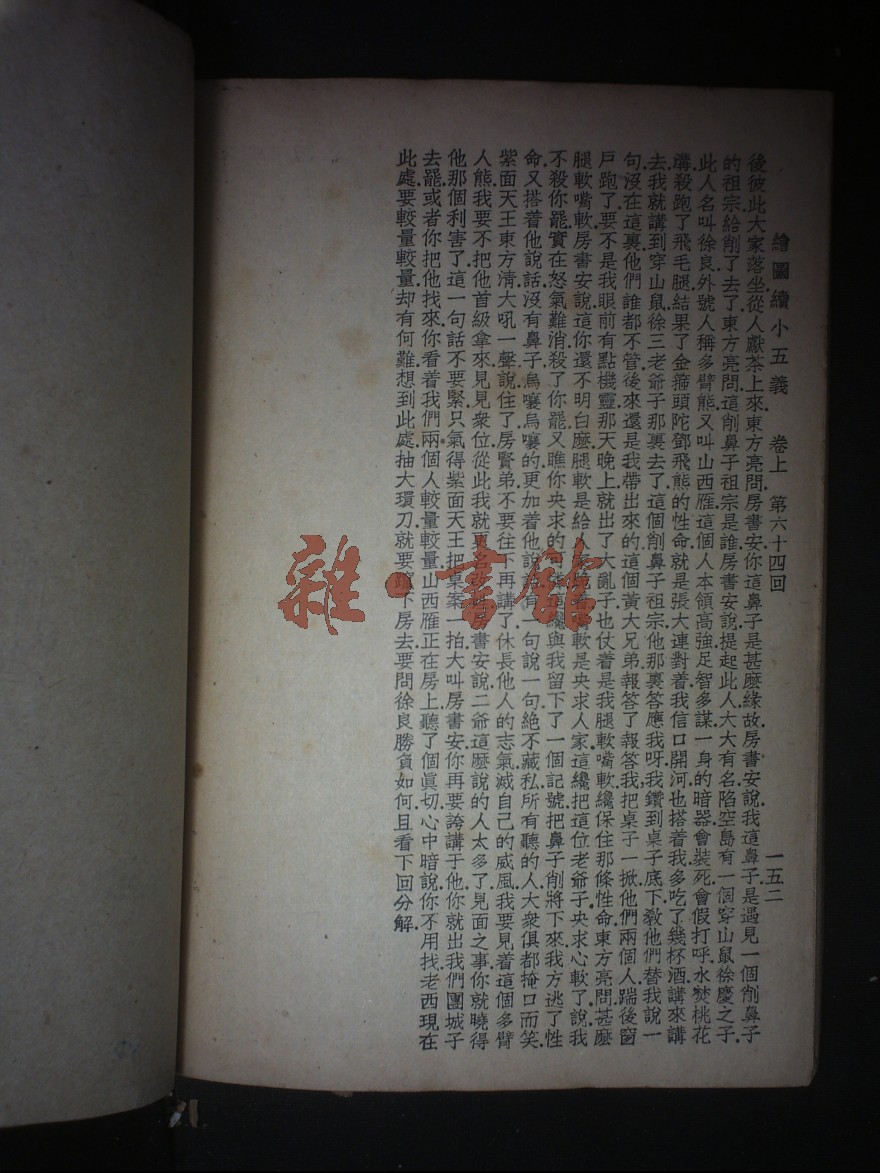 繪圖續小五義 卷上 第六十四回 一五二
後彼此大家落坐從人獻茶上來東方亮問房書安你這鼻子是甚麼緣故房書安說我這鼻子是遇見一個削鼻子
的祖宗給削了去了東方亮問這削鼻子祖宗是誰房書安說提起此人大大有名陷空島有一個穿山鼠徐慶之子
此人名叫徐良外號人稱多臂熊又叫山西雁這個人本領高強足智多謀一身的暗器會裝死會假打呼水焚桃花
溝殺跑了飛毛腿結果了金箍頭陀鄧飛熊的性命就是張大連對着我信口開河也搭着我多吃了幾杯酒講來講
去我就講到穿山鼠徐三老爺子那裏去了這個削鼻子祖宗他那裏答應我呀我鑽到桌子底下敎他們替我說一
句沒在這裏他們誰都不管後來還是我帶出來的這個黃大兄弟報答了報答我把桌子一掀他們兩個人踹後窗
戶跑了要不是我眼前有點機靈那天晚上就出了大亂子也仗着是我腿軟嘴軟纔保住那條性命東方亮問甚麼
腿軟嘴軟房書安說這你還不明白麼腿軟是給人家跪着嘴軟是央求人家這纔把這位老爺子央求心軟了說我
不殺你罷實在怒氣難消殺了你罷又瞧你央求的可憐這纔與我留下了一個記號把鼻子削將下來我方逃了性
命又搭着他說話沒有鼻子烏嚷烏嚷的更加着他說說有一句說一句絶不藏私所有聽的人大衆俱都掩口而笑
紫面天王東方清大吼一聲說住了房賢弟不要往下再講了休長他人的志氣滅自己的威風我要見着這個多臂
人熊我要不把他首級拿來見見衆位從此我就更名改姓房書安說二爺這麼說的人太多了見面之事你就曉得
他那個利害了這一句話不要緊只氣得紫面天王把桌案一拍大叫房書安你再要誇講于他你就出我們團城子
去罷或者你把他找來你看着我們兩個人較量較量山西雁正在房上聽了個眞切心中暗說你不用找老西現在
此處要較量較量却有何難想到此處抽大環刀就要躥下房去要問徐良勝負如何且看下回分解
雜·書館